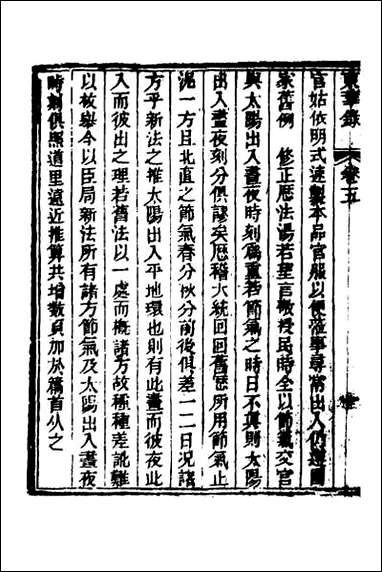 東華錄 卷五
官姑依明式速製本品官服以便涖事尋常出入仍遵國
家舊例 修正曆法湯若望言敬授民時全以節氣交宮
與太陽出入晝夜時刻爲重若節氣之時日不眞則太陽
出入晝夜刻分俱謬矣厯稽大統回回舊曆所用節氣止
泥一方且北直之節氣春分秋分前後俱差一二日况諸
方乎新法之推太陽出入平地環也則有此晝而彼夜此
入而彼出之理若舊法以一處而概諸方故種種差訛難
以枚舉今以臣局新法所有諸方節氣及太陽出入晝夜
時刻俱照道里遠近推算共增數頁加於篇首从之